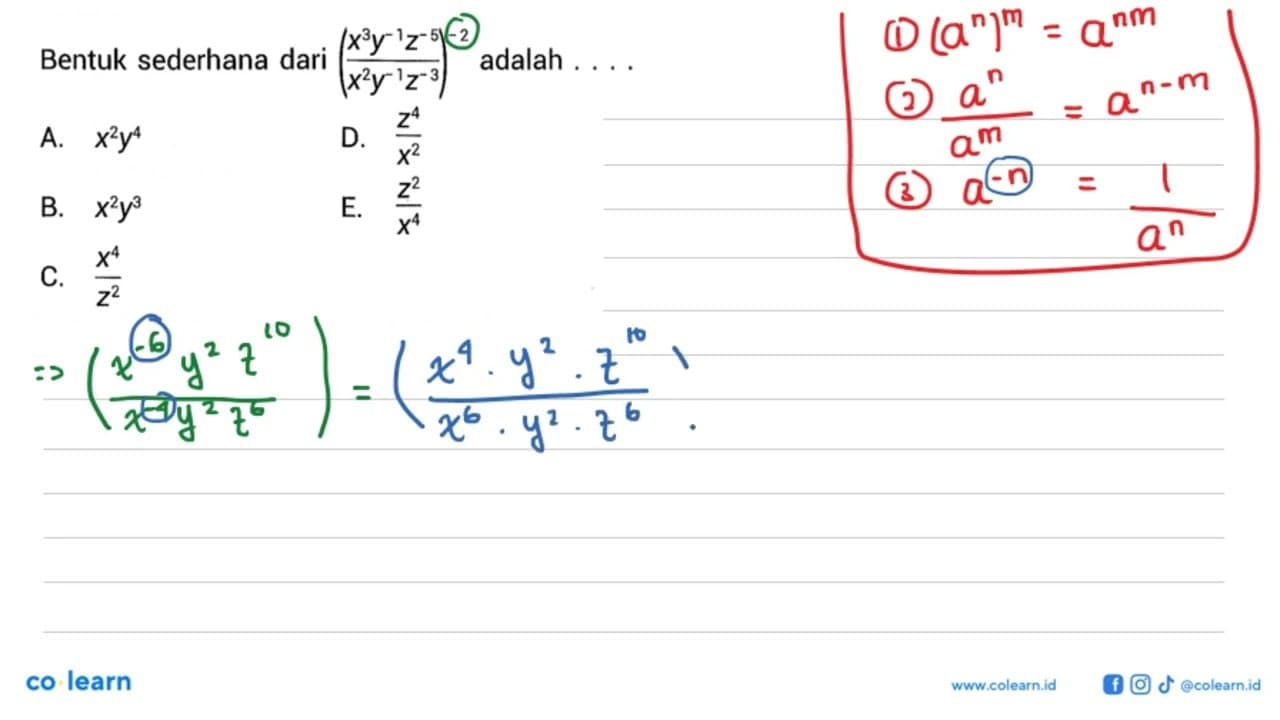 Bentuk sederhana dari (x³y⁻¹z⁻⁵ / x²y⁻¹z⁻³)⁻² adalah . . . .
A. x²y⁴
B. x²y³
C. x⁴/z²
D. z⁴/x²
E. z²/x⁴
① (aⁿ)ᵐ = aⁿᵐ
② aⁿ/aᵐ = aⁿ⁻ᵐ
③ a⁻ⁿ = 1/aⁿ
=> (x⁻⁶ y² z¹⁰ / x⁻⁴ y² z⁶) = (x⁴ . y² . z¹⁰ / x⁶ . y² . z⁶)
co learn
www.colearn.id
@colearn.id